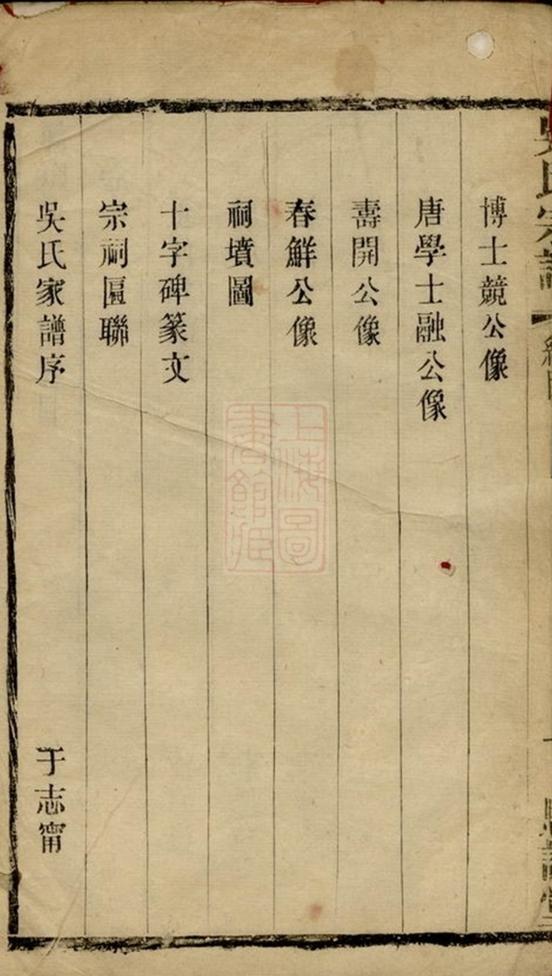 吳氏宗譜
博士競公像
唐學士融公像
壽開公像
春鮮公像
祠墳圖
十字碑篆文
宗祠匾聯
吳氏家譜序 于志甯
上海圖書館藏